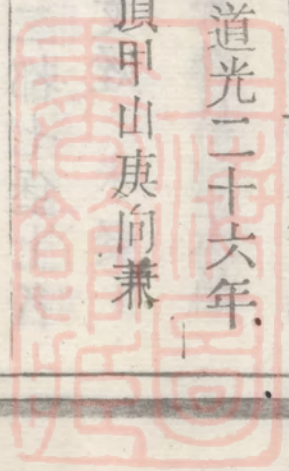 道光二十六年
頂甲山庚向兼